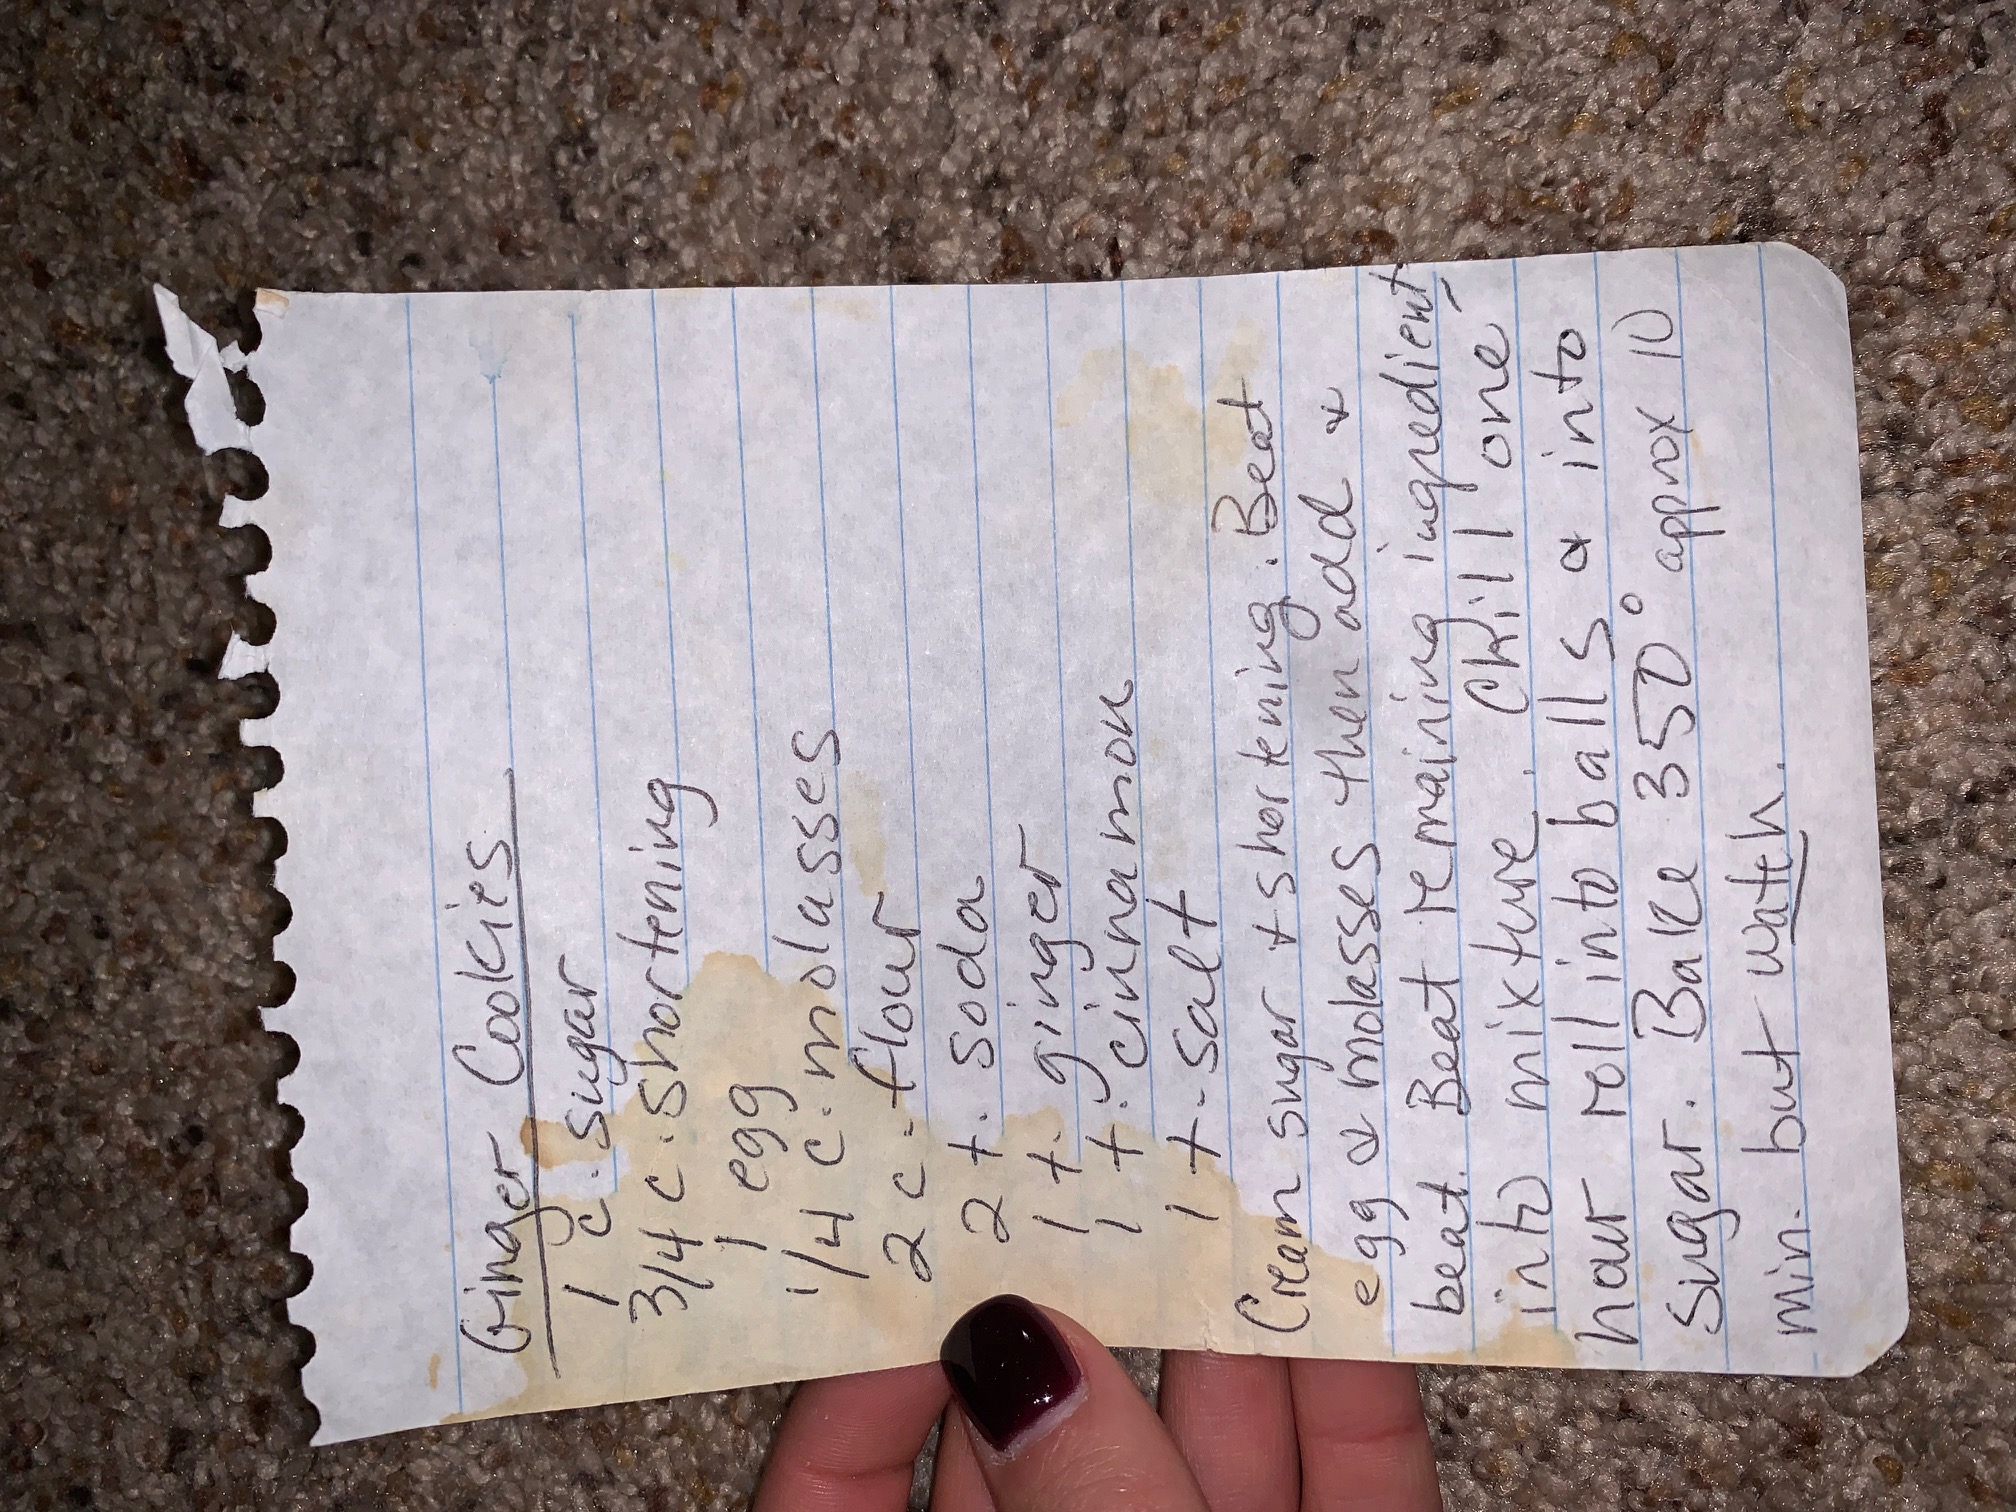 Ginger Cookies
1 c. sugar
3/4 c. shortening
1 egg
1/4 c. molasses
2 c. flour
2 t. soda
1 t. ginger
1 t. cinnamon
1 t. salt
Cream sugar + shortening. Beat
egg & molasses then add &
beat. Beat remaining ingredient
into mixture. Chill one
hour roll into balls & into
sugar. Bake 350° approx 10
min. but watch.